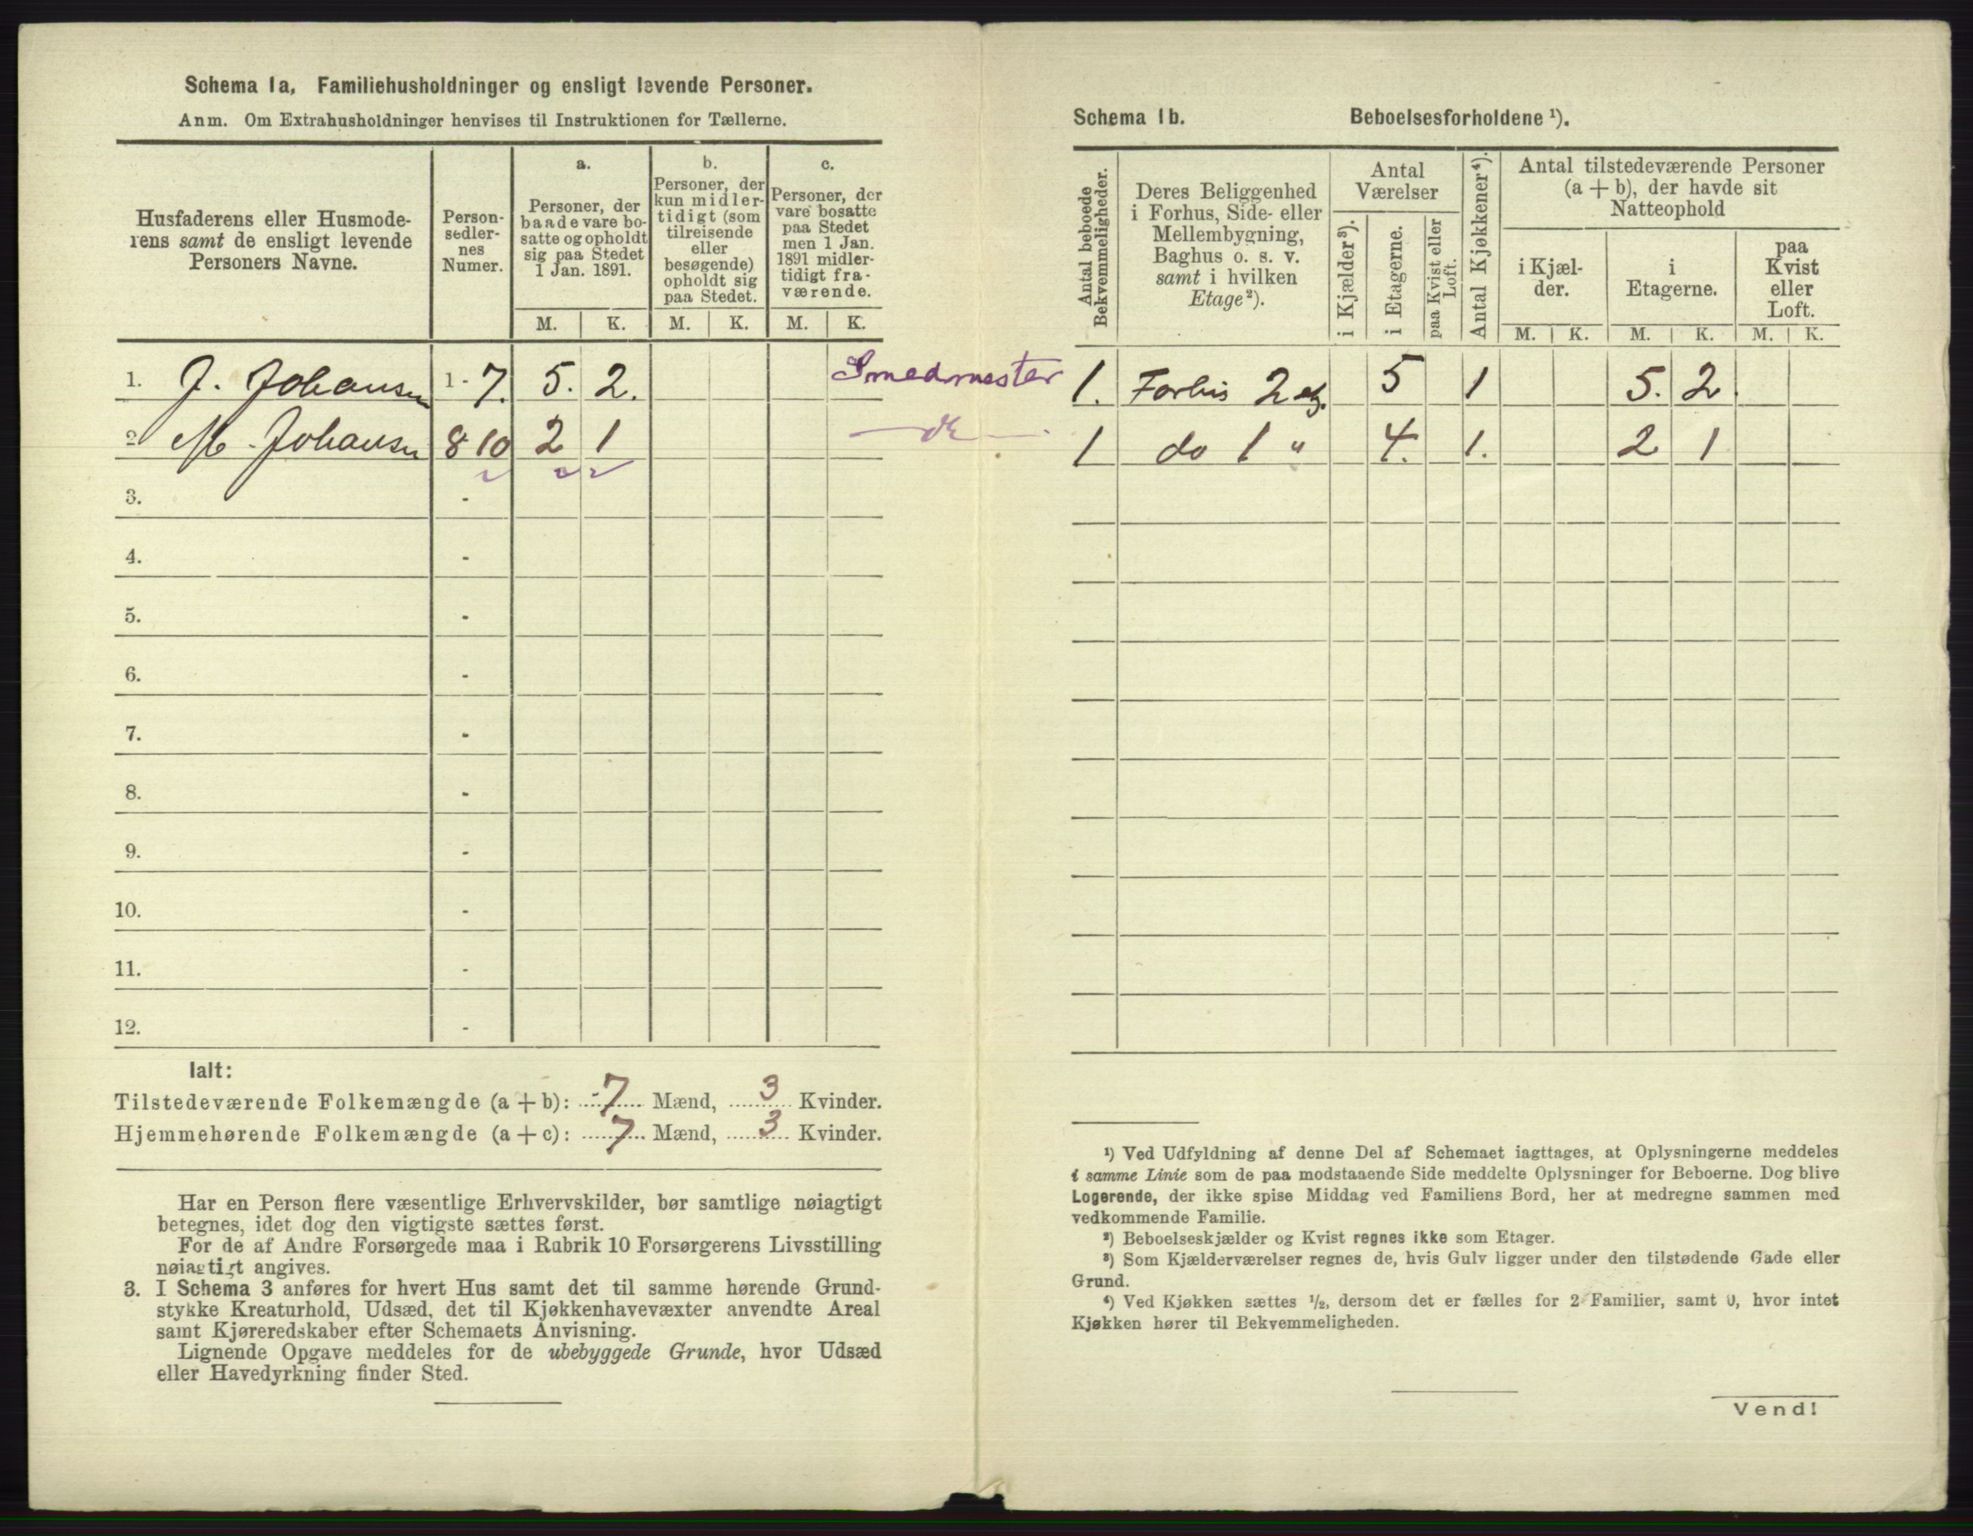 Schema 1a, Familiehusholdninger og ensligt levende Personer.
Anm. Om Extrahusholdninger henvises til Instruktionen for Tællerne.
Husfaderens eller Husmode-
rens samt de ensligt levende
Personers Navne.
Person-
sedler-
nes
Numer.
a.
Personer, der
baade vare bo-
satte og opholdt
sig paa Stedet
1 Jan. 1891.
b.
Personer, der
kun midler-
tidigt (som
tilreisende
eller
besøgende)
opholdt sig
paa Stedet.
c.
Personer, der
vare bosatte
paa Stedet
men 1 Jan.
1891 midler-
tidigt fra-
værende.
M. K. M. K. M. K.
1. J. Johansen 1 - 7. 5. 2. Smedmester
2 M. Johansen 8 10 2 1 do
3. -
4. -
5. -
6. -
7. -
8. -
9. -
10. -
11. -
12. -
Ialt:
Tilstedeværende Folkemængde (a + b): 7 Mænd, 3 Kvinder.
Hjemmehørende Folkemængde (a + c): 7 Mænd, 3 Kvinder.
Har en Person flere væsentlige Erhvervskilder, bør samtlige nøiagtigt
betegnes, idet dog den vigtigste sættes først.
For de af Andre Forsørgede maa i Rubrik 10 Forsørgerens Livsstilling
nøiagtigt angives.
3. I Schema 3 anføres for hvert Hus samt det til samme hørende Grund-
stykke Kreaturhold, Udsæd, det til Kjøkkenhavevæxter anvendte Areal
samt Kjøreredskaber efter Schemaets Anvisning.
Lignende Opgave meddeles for de ubebyggede Grunde, hvor Udsæd
eller Havedyrkning finder Sted.
Schema 1b. Beboelsesforholdene ¹).
Antal beboede
Bekvemmeligheder.
Deres Beliggenhed
i Forhus, Side- eller
Mellembygning,
Baghus o. s. v.
samt i hvilken
Etage²).
Antal
Værelser
i Kjælder³).
i Etagerne.
paa Kvist eller
Loft.
Antal Kjøkkener⁴).
Antal tilstedeværende Personer
(a + b), der havde sit
Natteophold
i Kjæl-
der.
i
Etagerne.
paa
Kvist
eller
Loft.
M. K. M. K. M. K.
1. Forhus 2 etg. 5 1 5. 2
1 do 1 " 4. 1. 2 1
¹) Ved Udfyldning af denne Del af Schemaet iagttages, at Oplysningerne meddeles
i samme Linie som de paa modstaaende Side meddelte Oplysninger for Beboerne. Dog blive
Logerende, der ikke spise Middag ved Familiens Bord, her at medregne sammen med
vedkommende Familie.
²) Beboelseskjælder og Kvist regnes ikke som Etager.
³) Som Kjælderværelser regnes de, hvis Gulv ligger under den tilstødende Gade eller
Grund.
⁴) Ved Kjøkken sættes ½, dersom det er fælles for 2 Familier, samt 0, hvor intet
Kjøkken hører til Bekvemmeligheden.
Vend!